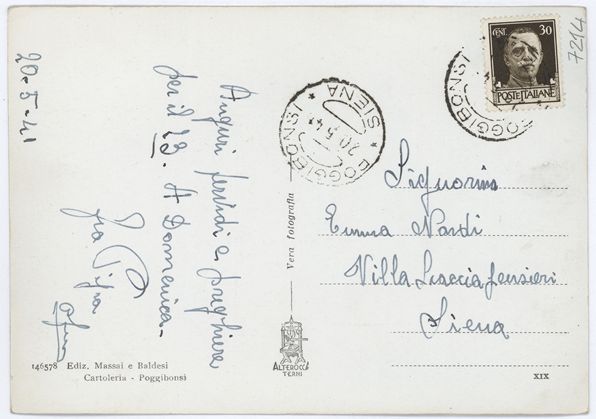 20-5-41
Auguri fervidi e preghiere
per il 23. A Domenica.
fra Pifra
146578 Ediz. Massai e Baldesi
Cartoleria - Poggibonsi
Vera fotografia
ALTEROCCA
TERNI
POGGIBONSI
* SIENA *
20.5.41
CENT. 30
POSTE ITALIANE
POGGIBONSI
7214
Signorina
Emma Nardi
Villa Scacciapensieri
Siena
XIX